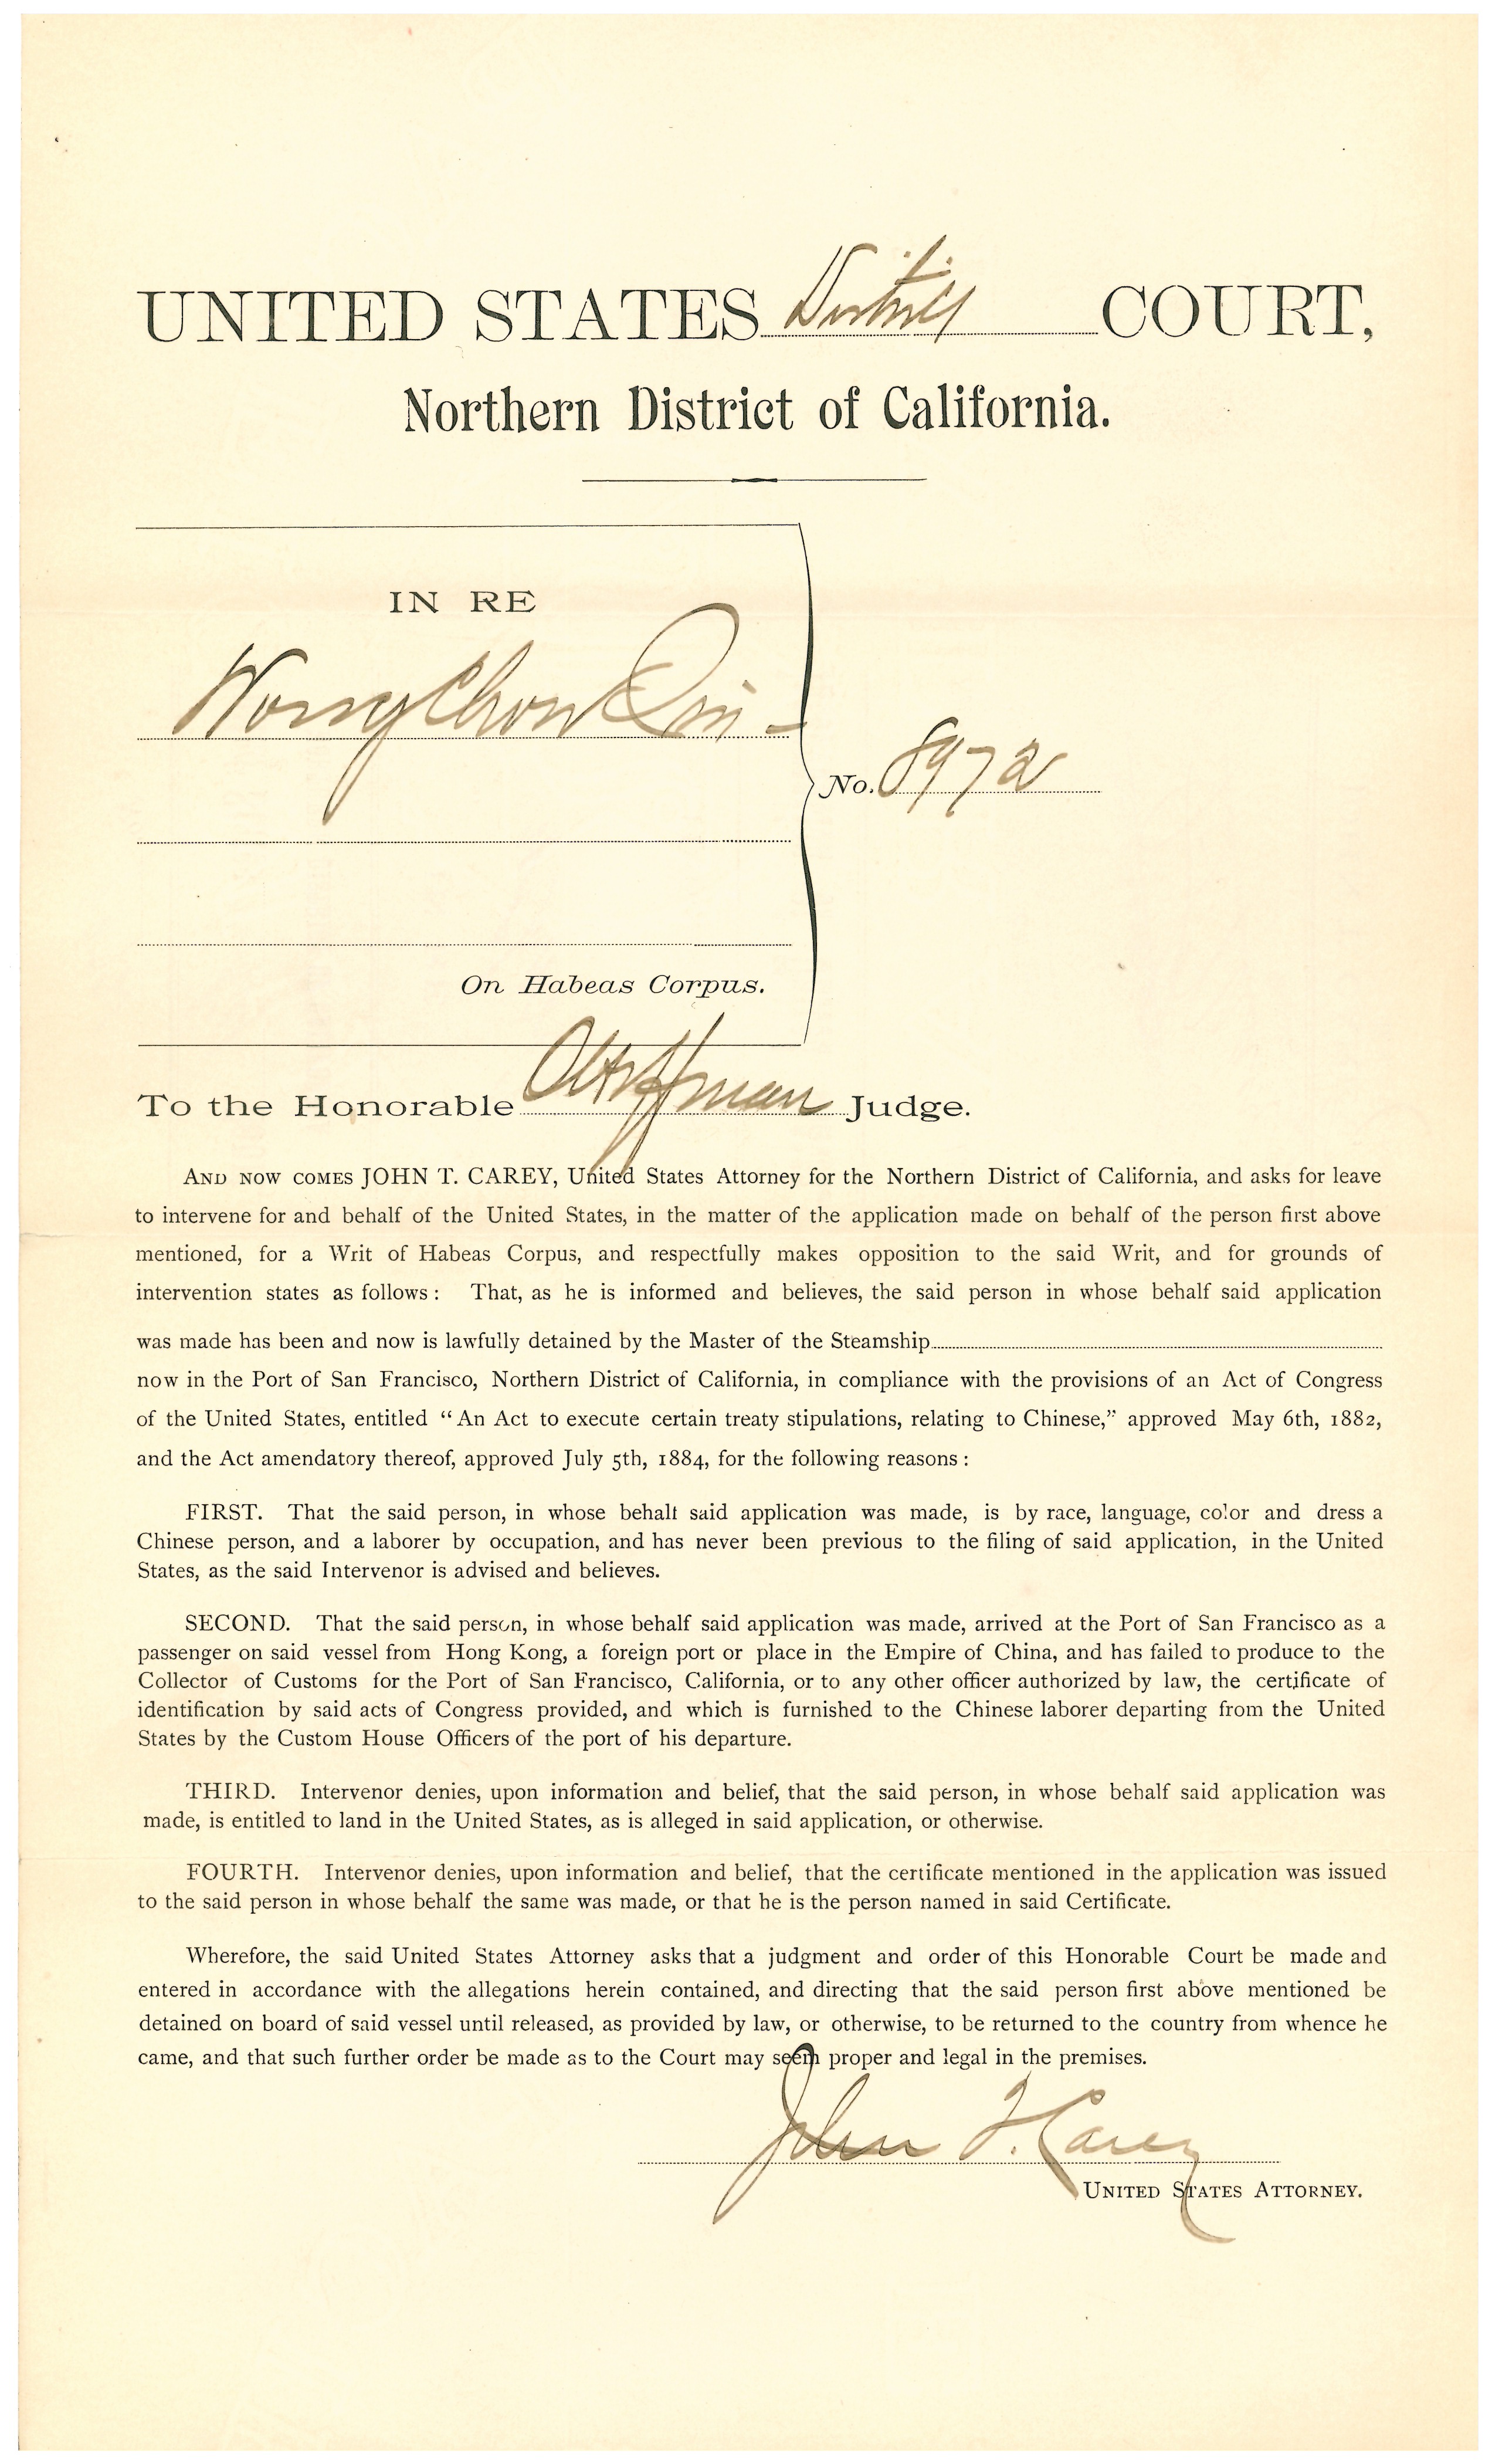 UNITED STATES District COURT,
Northern District of California.
IN RE
Wong Chow
No. 8972
On Habeas Corpus.
To the Honorable O Hoffman Judge.
AND NOW COMES JOHN T. CAREY, United States Attorney for the Northern District of California, and asks for leave
to intervene for and behalf of the United States, in the matter of the application made on behalf of the person first above
mentioned, for a Writ of Habeas Corpus, and respectfully makes opposition to the said Writ, and for grounds of
intervention states as follows: That, as he is informed and believes, the said person in whose behalf said application
was made has been and now is lawfully detained by the Master of the Steamship
now in the Port of San Francisco, Northern District of California, in compliance with the provisions of an Act of Congress
of the United States, entitled "An Act to execute certain treaty stipulations, relating to Chinese," approved May 6th, 1882,
and the Act amendatory thereof, approved July 5th, 1884, for the following reasons:
FIRST. That the said person, in whose behalf said application was made, is by race, language, color and dress a
Chinese person, and a laborer by occupation, and has never been previous to the filing of said application, in the United
States, as the said Intervenor is advised and believes.
SECOND. That the said person, in whose behalf said application was made, arrived at the Port of San Francisco as a
passenger on said vessel from Hong Kong, a foreign port or place in the Empire of China, and has failed to produce to the
Collector of Customs for the Port of San Francisco, California, or to any other officer authorized by law, the certificate of
identification by said acts of Congress provided, and which is furnished to the Chinese laborer departing from the United
States by the Custom House Officers of the port of his departure.
THIRD. Intervenor denies, upon information and belief, that the said person, in whose behalf said application was
made, is entitled to land in the United States, as is alleged in said application, or otherwise.
FOURTH. Intervenor denies, upon information and belief, that the certificate mentioned in the application was issued
to the said person in whose behalf the same was made, or that he is the person named in said Certificate.
Wherefore, the said United States Attorney asks that a judgment and order of this Honorable Court be made and
entered in accordance with the allegations herein contained, and directing that the said person first above mentioned be
detained on board of said vessel until released, as provided by law, or otherwise, to be returned to the country from whence he
came, and that such further order be made as to the Court may seem proper and legal in the premises.
John T. Carey
UNITED STATES ATTORNEY.